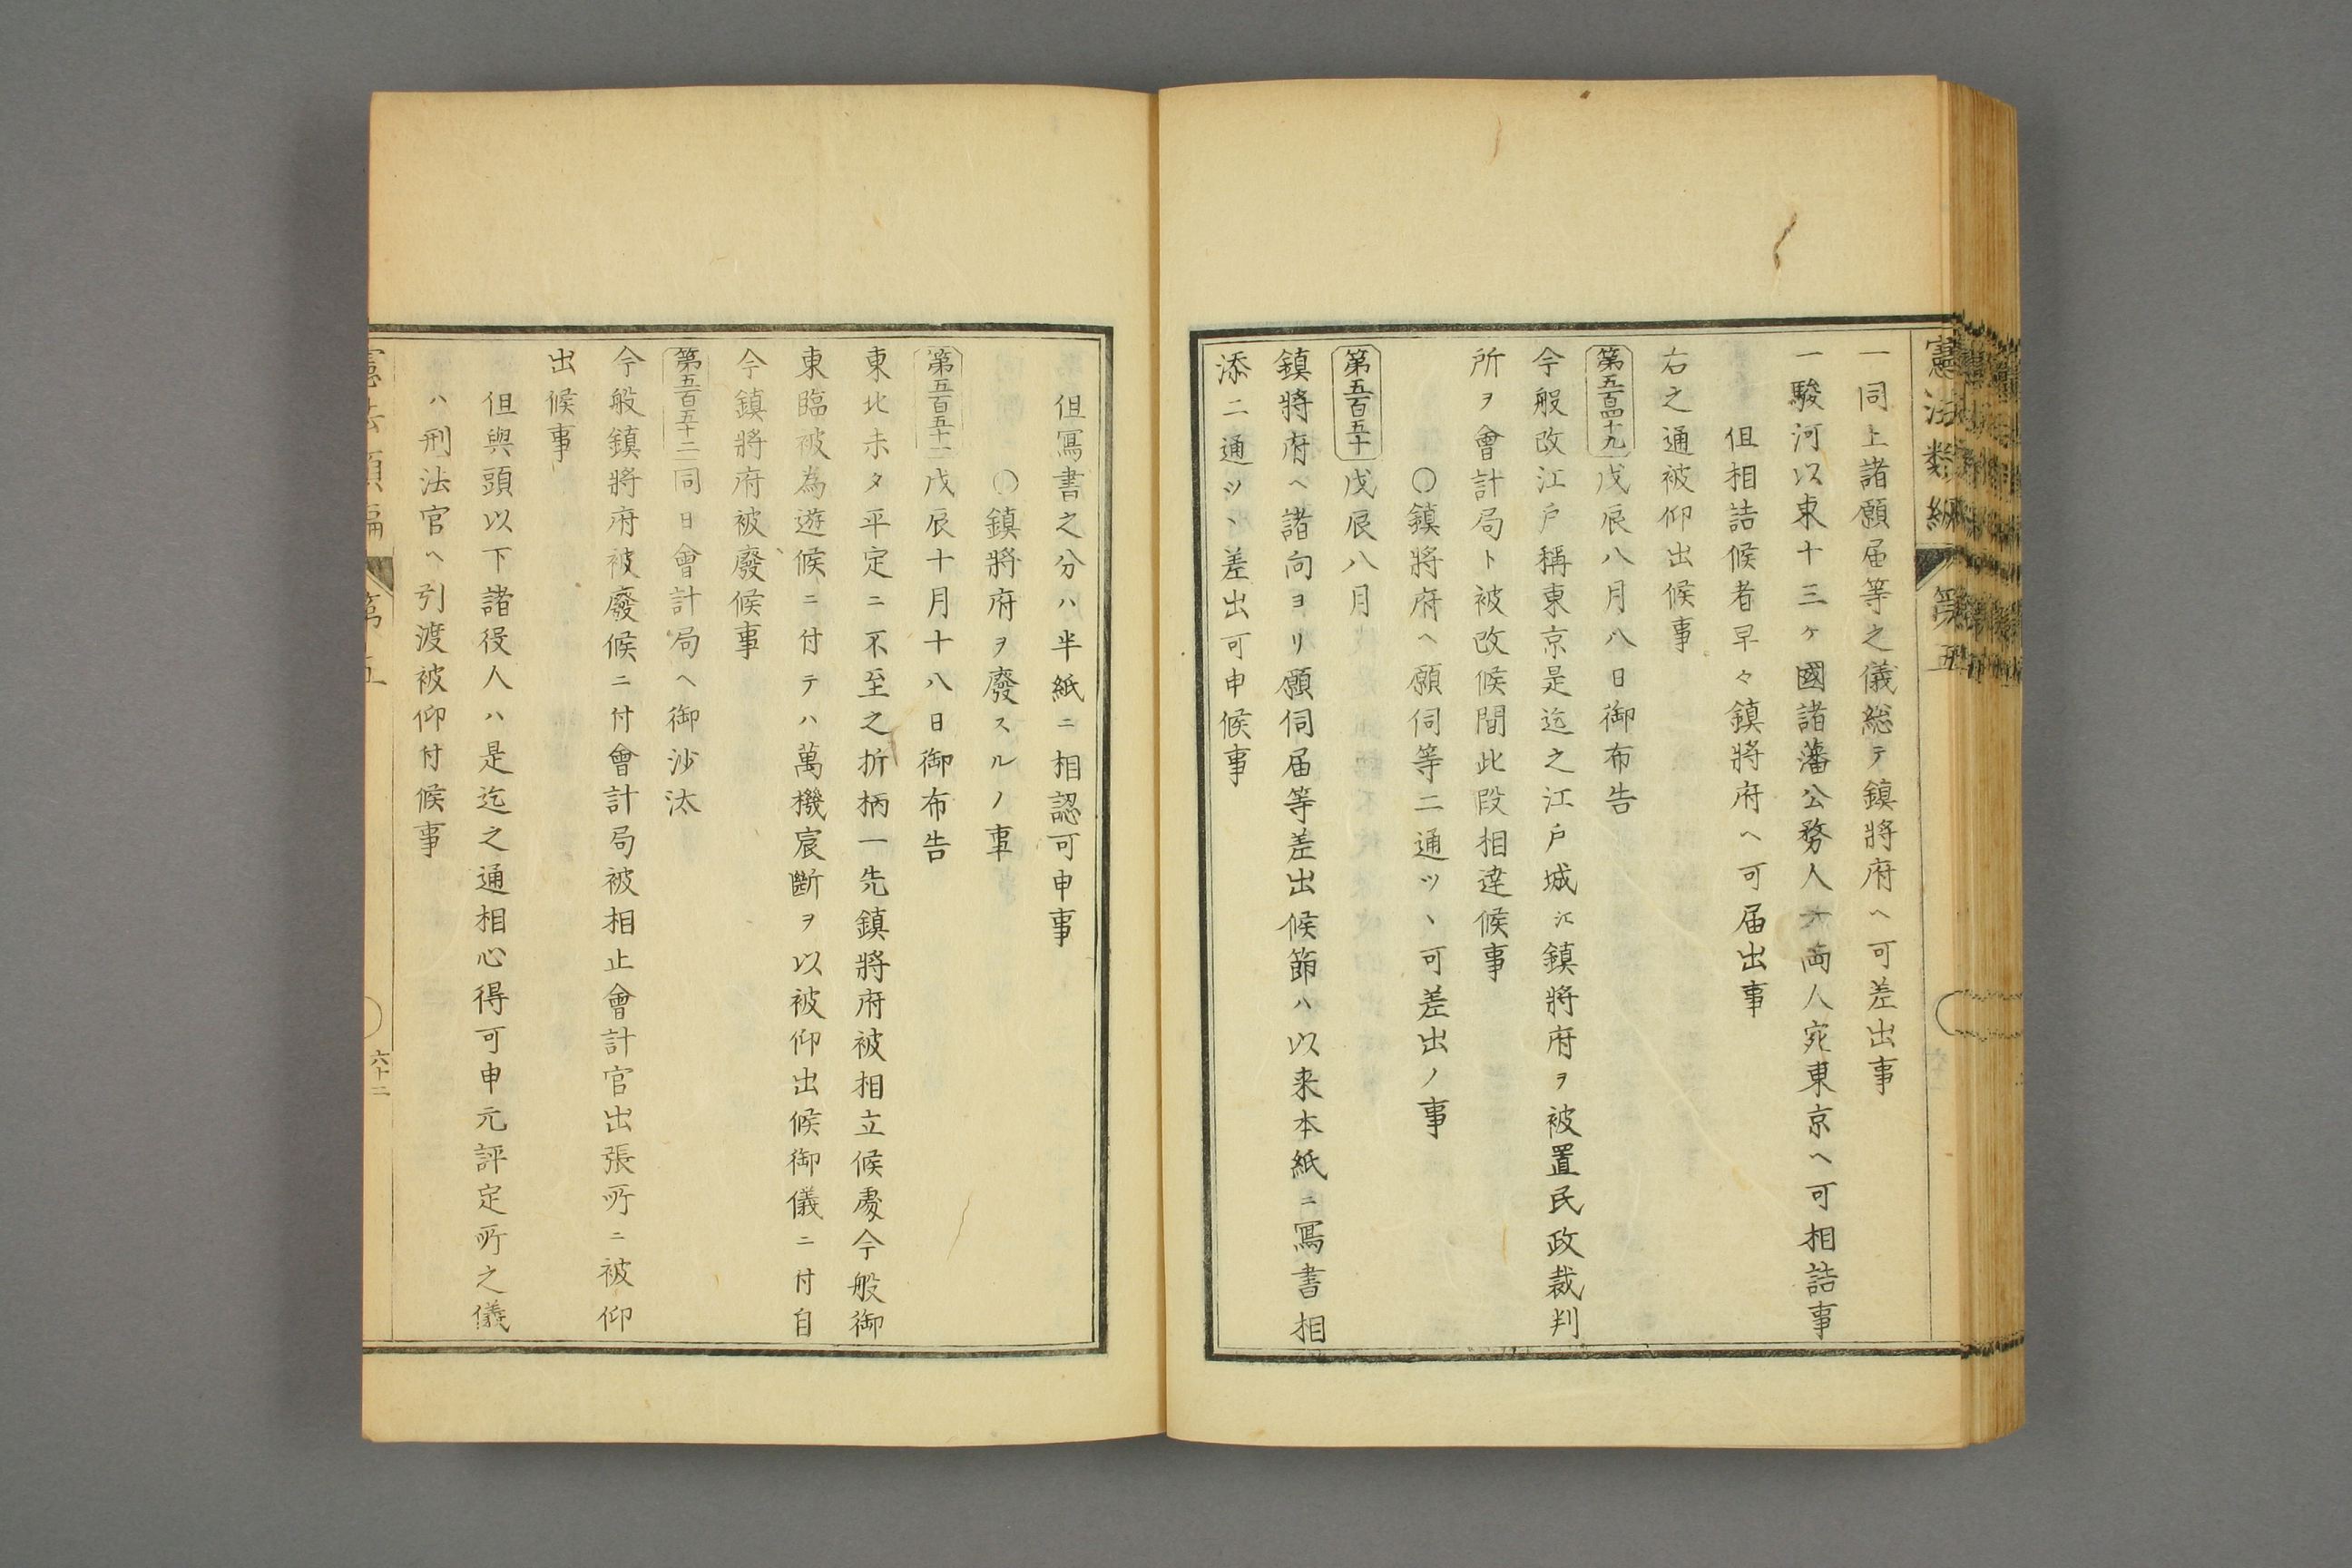 憲法類編 第五
一同上諸願届等之儀総テ鎮將府ヘ可差出事
一駿河以東十三ヶ國諸藩公務人 両人宛東京ヘ可相詰事
但相詰候者早々鎮將府ヘ可届出事
右之通被仰出候事
第五百四十九 戊辰八月八日御布告
今般改江戸稱東京是迄之江戸城江鎮將府ヲ被置民政裁判
所ヲ會計局ト被改候間此段相達候事
〇鎮將府ヘ願伺等二通ツヽ可差出ノ事
第五百五十 戊辰八月
鎮將府ヘ諸向ヨリ願伺届等差出候節ハ以来本紙ニ寫書相
添二通ツヽ差出可申候事
但寫書之分ハ半紙ニ相認可申事
〇鎮將府ヲ廢スルノ事
第五百五十一 戊辰十月十八日御布告
東北未タ平定ニ不至之折柄一先鎮將府被相立候處今般御
東臨被為遊候ニ付テハ萬機宸斷ヲ以被仰出候御儀ニ付自
今鎮將府被廢候事
第五百五十二 同日會計局ヘ御沙汰
今般鎮將府被廢候ニ付會計局被相止會計官出張所ニ被仰
出候事
但與頭以下諸役人ハ是迄之通相心得可申元評定所之儀
ハ刑法官ヘ引渡被仰付候事
憲法類編 第五 六十二